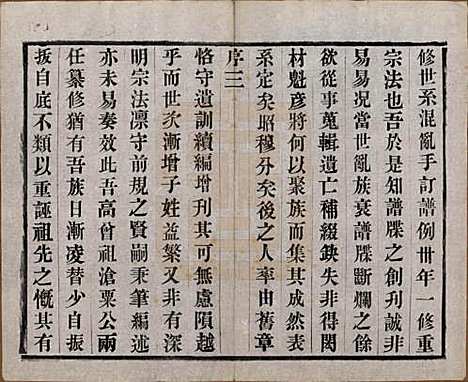 修世系混亂手訂譜例卅年一修重
宗法也吾於是知譜牒之創刊誠非
易易況當世亂族衰譜牒斷爛之餘
欲從事蒐輯遺亡補綴鈌失非得閎
材魁彥將何以聚族而集其成然表
系定矣昭穆分矣後之人率由舊章
序三
恪守遺訓續編增刊其可無慮隕越
乎而世次漸增子姓益繁又非有深
明宗法凛守前規之賢嗣秉筆編述
亦未易奏效此吾高曾祖滄粟公兩
任纂修猶有吾族日漸凌替少自振
拔自底不類以重誣祖先之慨其有